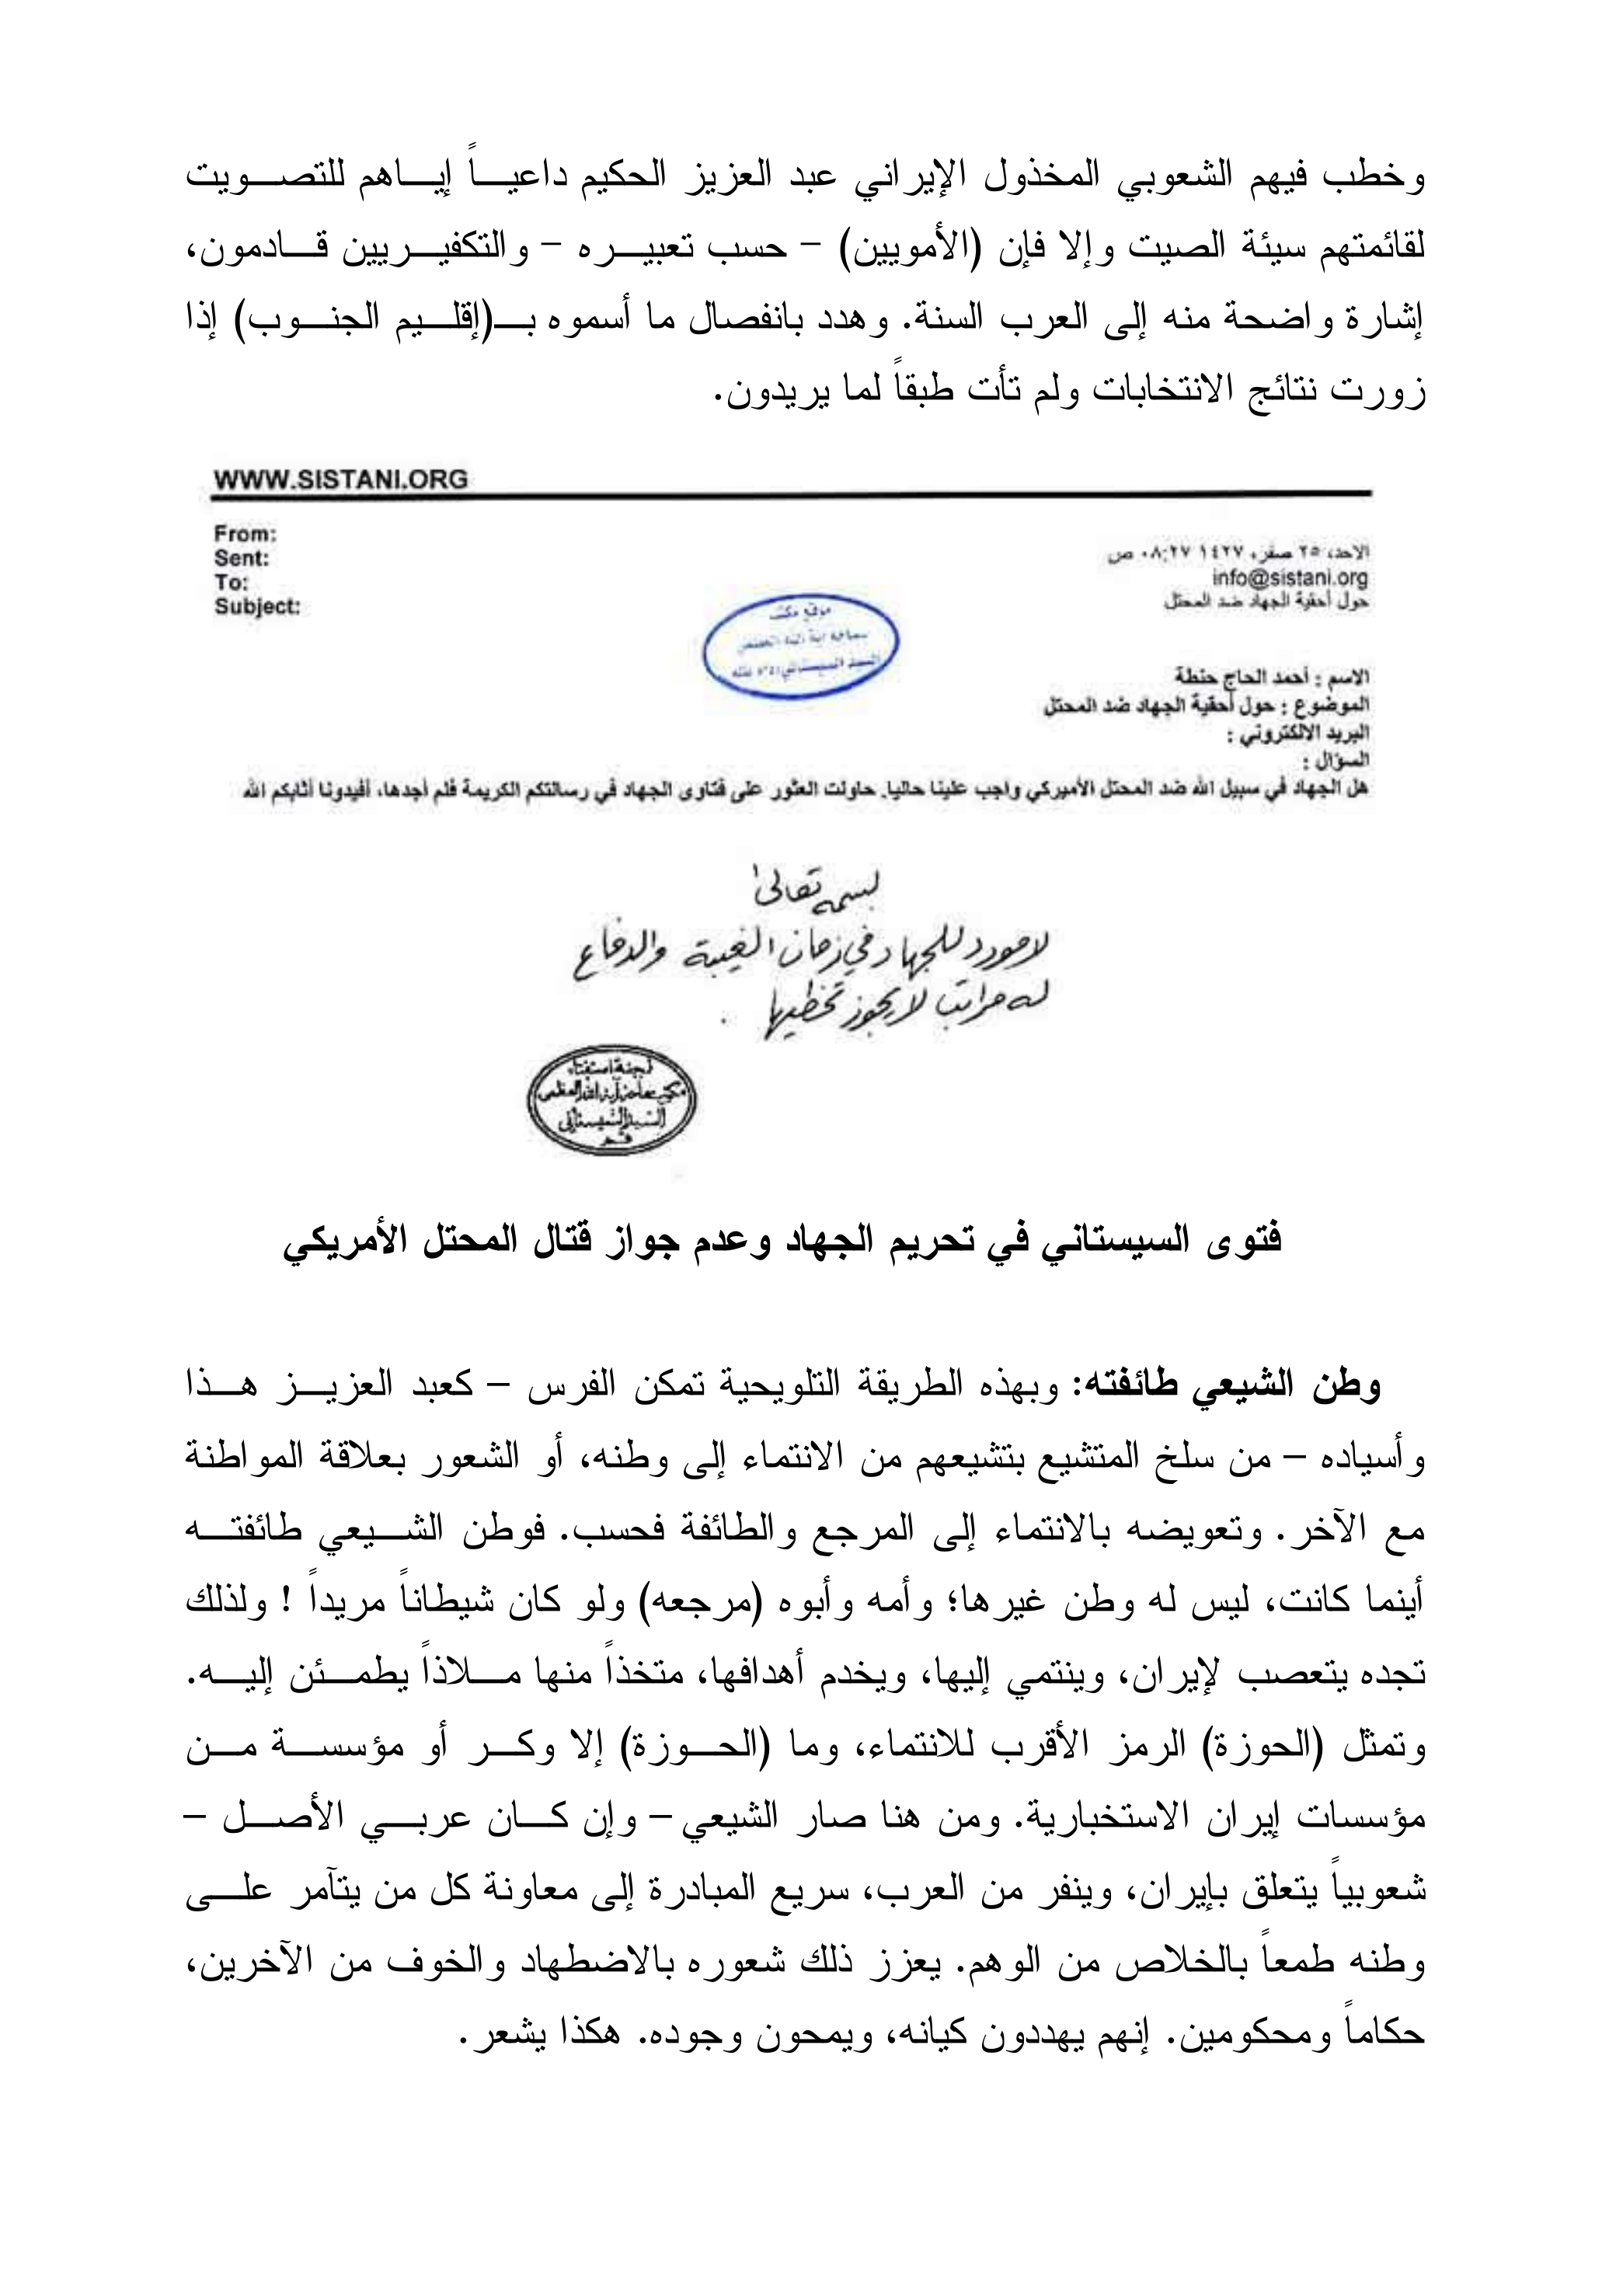 وخطب فيهم الشعوبي المخذول الإيراني عبد العزيز الحكيم داعيـــاً إيـــاهم للتصـــويت
لقائمتهم سيئة الصيت وإلا فإن (الأمويين) – حسب تعبيـــره – والتكفيـــريين قـــادمون،
إشارة واضحة منه إلى العرب السنة. وهدد بانفصال ما أسموه بــ(إقلـــيم الجنـــوب) إذا
زورت نتائج الانتخابات ولم تأت طبقاً لما يريدون.
WWW.SISTANI.ORG
From:
Sent:
To:
Subject:
الاحد، ٢٥ صفر، ١٤٢٧ ٠٨:٢٧ ص
info@sistani.org
حول أحقية الجهاد ضد المحتل
موقع مكتب
سماحة آية الله العظمى
الاسم : أحمد الحاج حنطة
الموضوع : حول أحقية الجهاد ضد المحتل
البريد الالكتروني :
السؤال :
هل الجهاد في سبيل الله ضد المحتل الأميركي واجب علينا حاليا. حاولت العثور على فتاوى الجهاد في رسالتكم الكريمة فلم أجدها، أفيدونا أثابكم الله
بسمه تعالى
لا مورد للجهاد في زمان الغيبة والدفاع
له مراتب لا يجوز تخطيها .
لجنة استفتاء
مكتب سماحة آية الله العظمى
السيد السيستاني
قم
فتوى السيستاني في تحريم الجهاد وعدم جواز قتال المحتل الأمريكي
وطن الشيعي طائفته: وبهذه الطريقة التلويحية تمكن الفرس – كعبد العزيـــز هـــذا
وأسياده – من سلخ المتشيع بتشيعهم من الانتماء إلى وطنه، أو الشعور بعلاقة المواطنة
مع الآخر. وتعويضه بالانتماء إلى المرجع والطائفة فحسب. فوطن الشـــيعي طائفتـــه
أينما كانت، ليس له وطن غيرها؛ وأمه وأبوه (مرجعه) ولو كان شيطاناً مريداً ! ولذلك
تجده يتعصب لإيران، وينتمي إليها، ويخدم أهدافها، متخذاً منها مـــلاذاً يطمـــئن إليـــه.
وتمثل (الحوزة) الرمز الأقرب للانتماء، وما (الحـــوزة) إلا وكـــر أو مؤسســـة مـــن
مؤسسات إيران الاستخبارية. ومن هنا صار الشيعي – وإن كـــان عربـــي الأصـــل –
شعوبياً يتعلق بإيران، وينفر من العرب، سريع المبادرة إلى معاونة كل من يتآمر علـــى
وطنه طمعاً بالخلاص من الوهم. يعزز ذلك شعوره بالاضطهاد والخوف من الآخرين،
حكاماً ومحكومين. إنهم يهددون كيانه، ويمحون وجوده. هكذا يشعر.